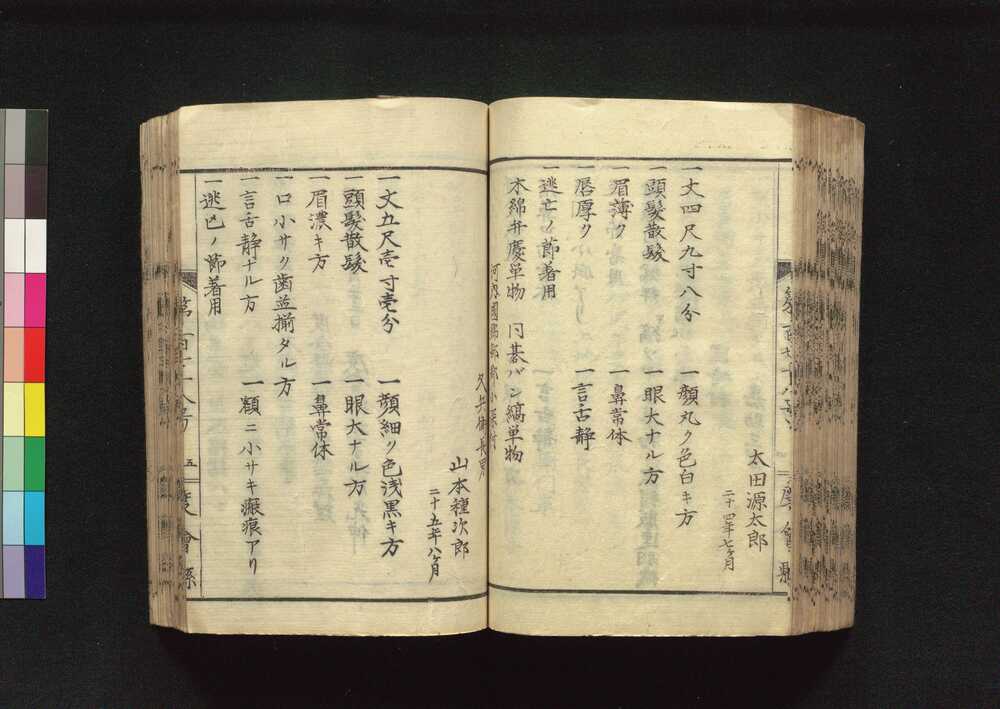 太田源太郎
二十四年七ヶ月
一丈四尺九寸八分 一顔丸ク色白キ方
一頭髪散髪 一眼大ナル方
一眉薄ク 一鼻常体
一唇厚ク 一言舌静
一逃亡ノ節着用
木綿弁慶単物 同碁バン縞単物
久兵衛長男
山本種次郎
二十五年八ヶ月
一丈五尺壱寸壱分 一顔細ク色浅黒キ方
一頭髪散髪 一眼大ナル方
一眉濃キ方 一鼻常体
一口小サク歯並揃タル方
一言舌静ナル方 一額ニ小サキ瘢痕アリ
一逃亡ノ節着用
五
度會縣